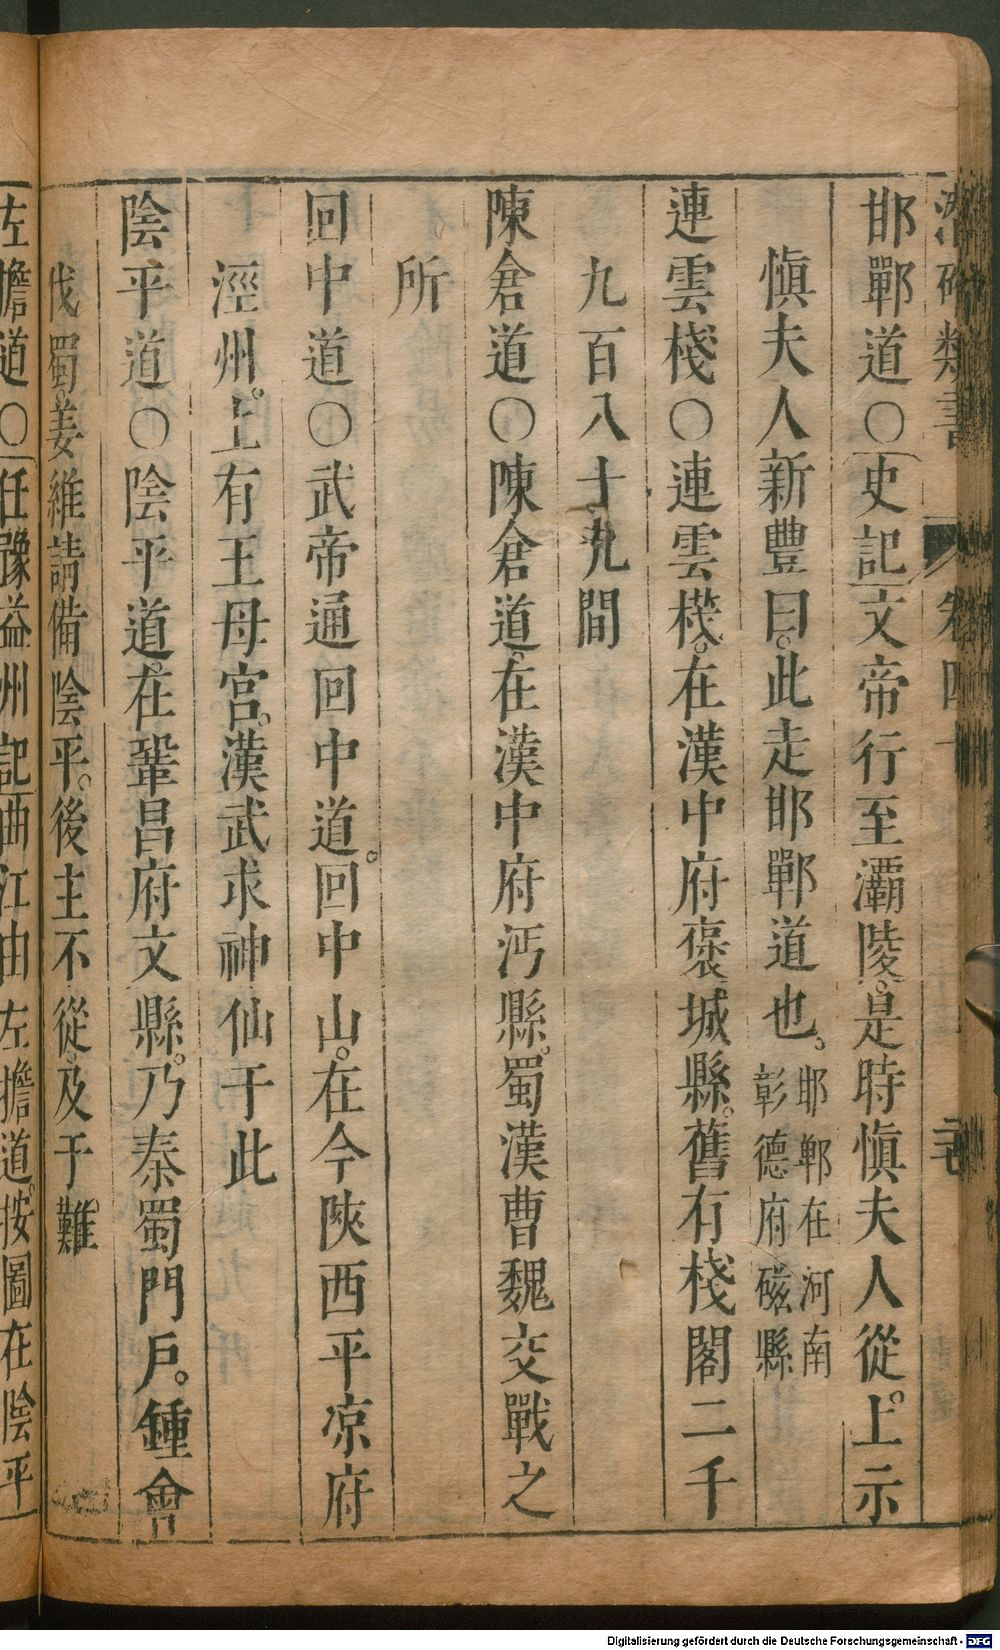 潛確類書 卷四十 三七
邯鄲道〇史記文帝行至灞陵。是時慎夫人從。上示
慎夫人新豐曰。此走邯鄲道也。邯鄲在河南
彰德府磁縣
連雲棧〇連雲棧。在漢中府褒城縣。舊有棧閣二千
九百八十九間
陳倉道〇陳倉道。在漢中府沔縣。蜀漢曹魏交戰之
所
回中道〇武帝通回中道。回中山。在今陝西平凉府
涇州。上有王母宮。漢武求神仙于此
陰平道〇陰平道。在鞏昌府文縣。乃秦蜀門戶。鍾會
伐蜀。姜維請備陰平。後主不從。及于難。
左擔道〇任豫益州記曲江由左擔道。按圖在陰平
Digitalisierung gefördert durch die Deutsche Forschungsgemeinschaft - DFG